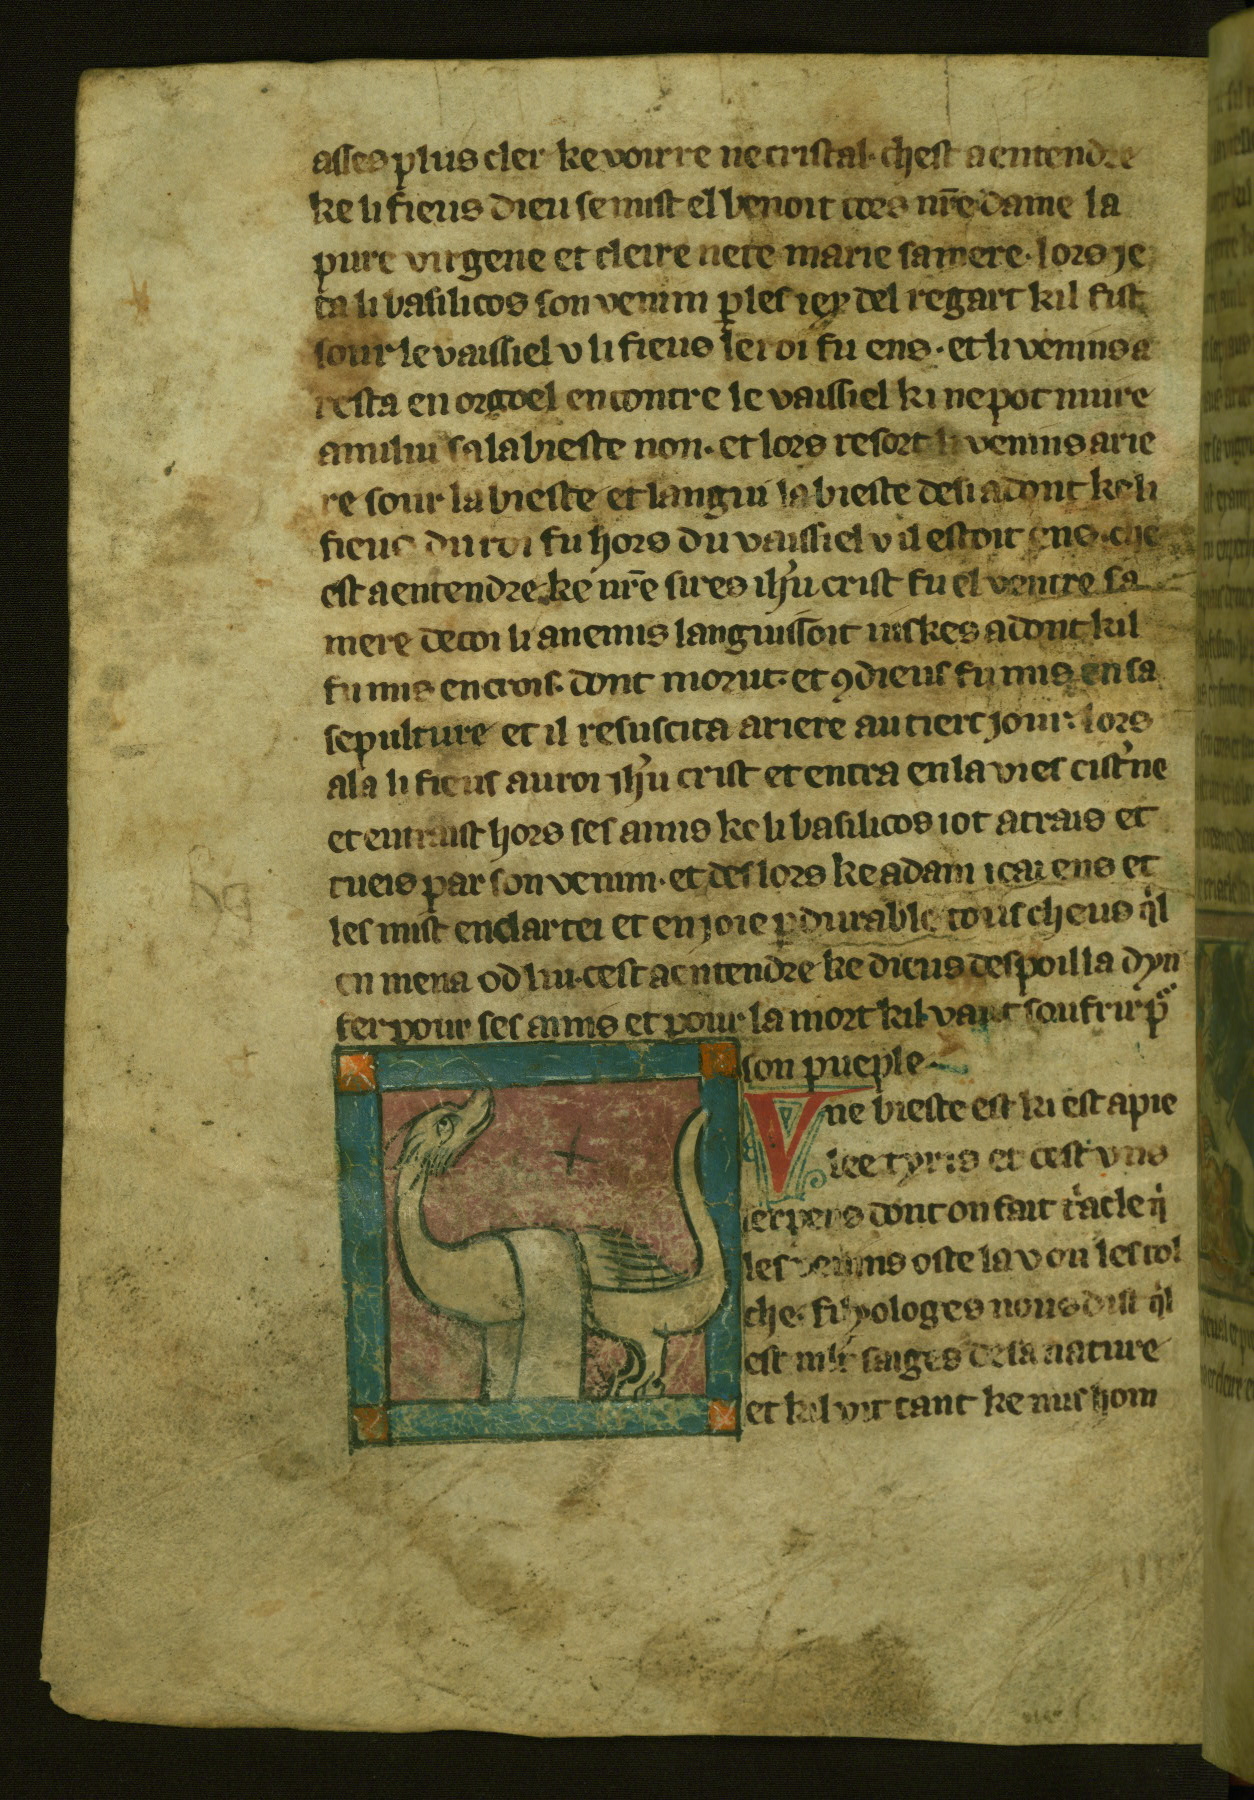 asses plus cler ke voirre ne cristal· chest a entendre
ke li fieus dieu se mist el benoit cors nr̄e dame la
pure virgene et cleire nete marie sa mere· lors je
ta li basilicos son venim p̲ les iex del regart kil fist
sour le vaissiel v li fieus le roi fu ens· et li venins a
resta en orgoel encontre le vaissiel ki ne pot nuire
a nului sa la bieste non· et lors resort li venins arie
re sour la bieste et langui la bieste desi adont ke li
fieus du roi fu hors du vaissiel v il estoit ens· che
est a entendre ke nr̄e sires ih̄u crist fu el ventre sa
mere de coi li anemis languissoit iuskes adont kil
fu mis en crois· dont morut· et ꝯ dieus fu mis en sa
sepulture et il resuscita ariere au tierc jour· lors
ala li fieus au roi jh̄u crist et entra en la vies cist'ne
et entraist hors ses amis ke li basilicos i ot atrais et
tueis par son venim· et des lors ke adam i cai ens et
les mist en clartei et en joie p̲durable tous cheus q'l
en mena od lui· cest a entendre ke dieus despoilla dyn
fer pour ses amis et pour la mort kil vaut soufrir p̲
son pueple
Vne bieste est ki est apie
lee tyris et cest vns
serpens dont on fait t'acle q'
les venins oste la v on les tol
che· fisyologes nous dist q'l
est ml't saiges de sa nature
et kil vit tant ke nus hom